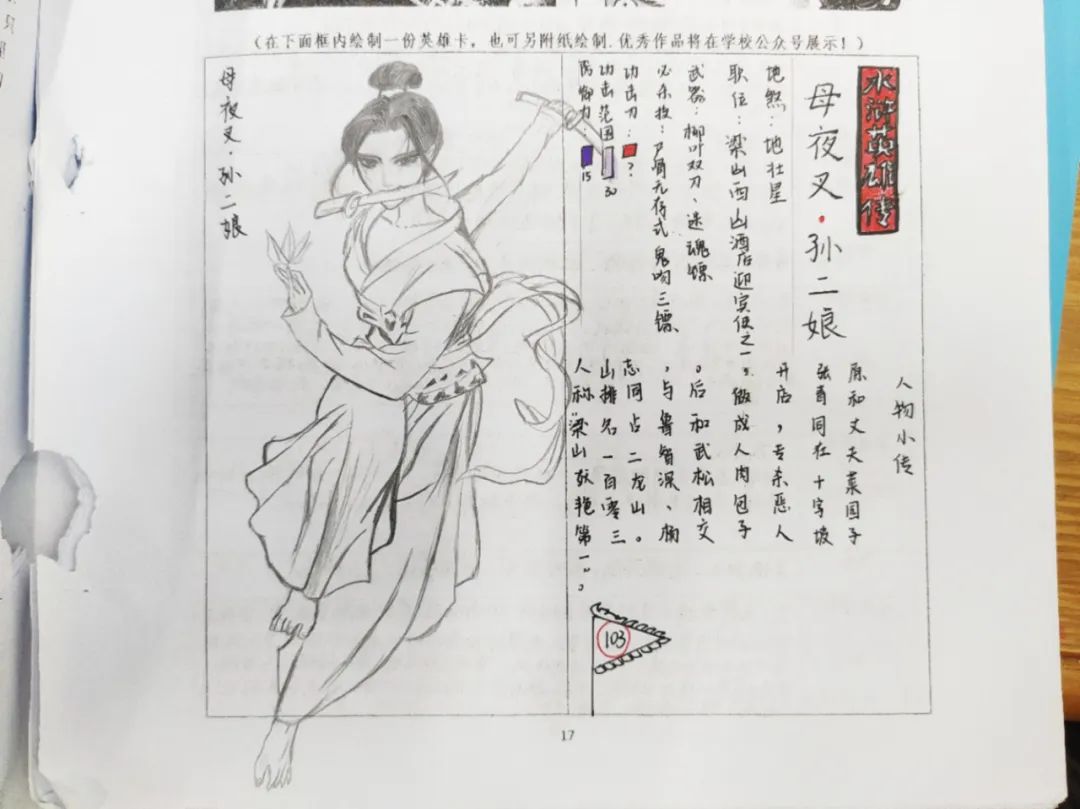 （在下面框内绘制一份英雄卡，也可另附纸绘制.优秀作品将在学校公众号展示！）
母夜叉·孙二娘
水浒英雄传
母夜叉·孙二娘
地煞：地壮星
职位：梁山西山酒店迎宾使之一
武器：柳叶双刀、迷魂镖
必杀技：尸骨无存式 鬼吻三镖
功击力：?
功击范围：30
防御力：15
人物小传
原和丈夫菜园子
张青同在十字坡
开店，专杀恶人
做成人肉包子
。后和武松相交
，与鲁智深、杨
志同占二龙山。
山排名一百零三
人称“梁山妖艳第一”。
103
17